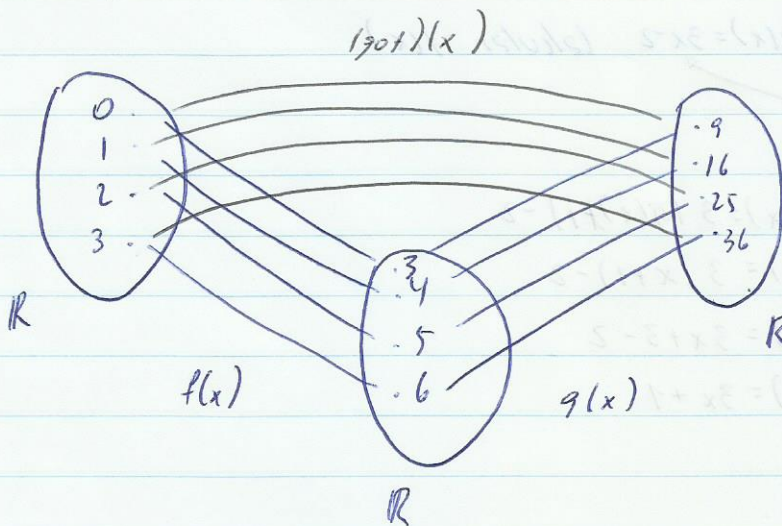 (gof)(x)
0
1
2
3
R
f(x)
3
4
5
6
R
g(x)
9
16
25
36
R